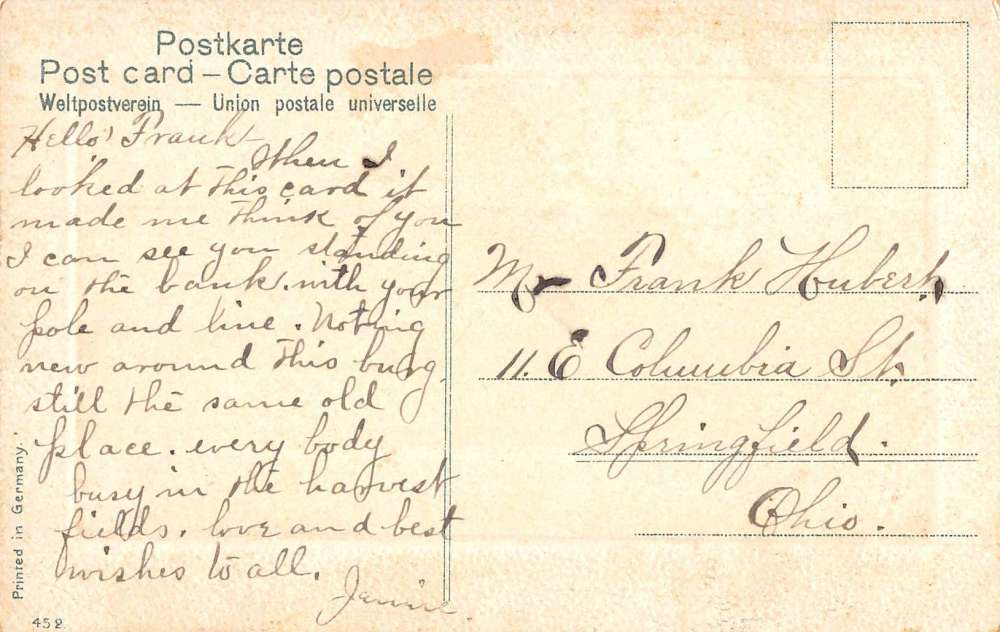 Postkarte
Post card – Carte postale
Weltpostverein — Union postale universelle
Hello Frank
When I
looked at this card it
made me think of you
I can see you standing
on the bank. with your
pole and line. Nothing
new around this burg,
still the same old
place. every body
busy in the harvest
fields. love and best
wishes to all.
Jennie
Mr Frank Hubert
11. E Columbia St.
Springfield.
Ohio.
Printed in Germany.
452